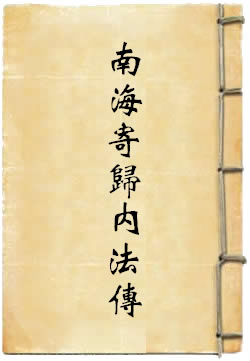 南海寄歸內法傳